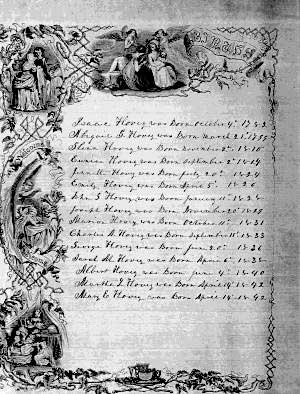 BIRTHS
Isaac Hovey was Born October 4th 17
Abigail G. Hovey was Born March 21st
Hovey was Born December 2nd 1810
Eunice Hovey was Born September 2nd 1814
Hovey was Born July 20th 1824
Emily Hovey was Born April 5th 1826
John S Hovey was Born January 11th 1828
Joseph Hovey was Born November 20th
Hovey was Born October 11th 1831
Charles A Hovey was Born September 11th 1833
George Hovey was Born June 20th 1836
Sarah M Hovey was Born April 6th 1838
Albert Hovey was Born June 4th 1840
Martha J Hovey was Born April 14th 1842
Mary E Hovey was Born April 14th 1842